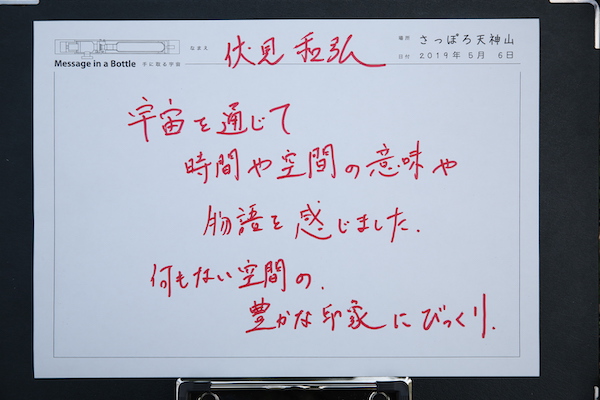 Message in a Bottle 手に取る宇宙
なまえ 伏見 和弘
場所 さっぽろ天神山
日付 2019年5月 6日
宇宙を通じて
時間や空間の意味や
物語を感じました.
何もない空間の.
豊かな印象にびっくり.